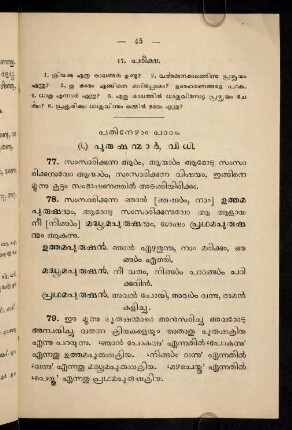 — 45 —
17. പരീക്ഷ.
1. ക്രിയക്കു എത്ര കാലങ്ങൾ ഉണ്ടു? 2. വൎത്തമാനകാലത്തിന്റെ പ്രത്യയം
എന്തു? 3. ഉ കാരം എങ്ങിനെ മാറിപ്പോകും? ഉദാഹരണങ്ങളെ പറക.
4. ധാതു എന്നാൽ എന്തു? 5. ഏതു കാലത്തിൽ ധാതുവിന്നോടു പ്രത്യയം ചേ
ൎക്കും? 6. പ്രകൃതിക്കും ധാതുവിന്നും തമ്മിൽ ഭേദം എന്തു?
പതിനേഴാം പാഠം.
(i.) പുരുഷന്മാർ, വിധി.
77. സംസാരിക്കുന്ന ആൾ, ആയാൾ ആരോടു സംസാ
രിക്കുന്നുവോ അവൻ, സംസാരിക്കുന്ന വിഷയം, ഇങ്ങിനെ
മൂന്നു കൂട്ടം സംഭാഷണത്തിൽ അടങ്ങിയിരിക്കും.
78. സംസാരിക്കുന്ന ഞാൻ [ഞങ്ങൾ, നാം] ഉത്തമ
പുരുഷനും, ആരോടു സംസാരിക്കുന്നുവോ ആ ആളായ
നീ [നിങ്ങൾ] മദ്ധ്യമപുരുഷനും, ശേഷം പ്രഥമപുരുഷ
നും ആകുന്നു.
ഉത്തമപുരുഷൻ. ഞാൻ എഴുതുന്നു, നാം മരിക്കും, ഞ
ങ്ങൾ എത്തി.
മദ്ധ്യമപുരുഷൻ. നീ വരുന്നു, നിങ്ങൾ പാഠങ്ങൾ പഠി
ക്കുവിൻ.
പ്രഥമപുരുഷൻ. അവൻ പോയി, അവൾ വന്നു, രാമൻ
കളിച്ചു.
79. ഈ മൂന്നു പുരുഷന്മാരെ അനുസരിച്ചു അവരോടു
അന്വയിച്ചു വരുന്ന ക്രിയകളെയും അതാതു പുരുഷക്രിയ
എന്നു പറയുന്നു. ‘ഞാൻ പോകുന്നു’ എന്നതിൽ ‘പോകുന്നു’
എന്നതു ഉത്തമപുരുഷക്രിയ. ‘നിങ്ങൾ വന്നു’ എന്നതിൽ
‘വന്നു’ എന്നതു മദ്ധ്യമപുരുഷക്രിയ. ‘മഴപെയ്തു’ എന്നതിൽ
‘പെയ്തു’ എന്നതു പ്രഥമപുരുഷക്രിയ.